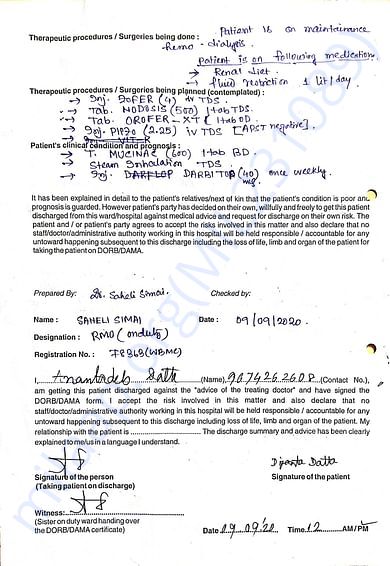 Patient is on maintainance
Therapeutic procedures / Surgeries being done :
Hemo - dialysis
Patient is on following medication
→ Renal diet.
→ fluid restriction 1 lit/day.
Therapeutic procedures / Surgeries being planned (contemplated) :
→ Inj. (4) iv TDS.
→ Tab. NODOSIS (500) 1 tab TDS.
→ Tab. OROFER - XT 1 tab OD
→ Inj. (2.25) iv TDS [ negative].
Patient's clinical condition and prognosis :
→ T. MUCINAC (600) 1 tab BD.
→ Steam Inhalation TDS.
→ Inj. (40) mg once weekly.
It has been explained in detail to the patient's relatives/next of kin that the patient's condition is poor and
prognosis is guarded. However patient/party has decided on their own, willfully and freely to get this patient
discharged from this ward/hospital against medical advice and request for discharge on their own risk. The
patient and / or patient's party agrees to accept the risks involved in this matter and also declare that no
staff/doctor/administrative authority working in this hospital will be held responsible / accountable for any
untoward happening subsequent to this discharge including the loss of life, limb and organ of the patient for
taking the patient on DORB/DAMA.
Prepared By: Dr. Saheli Simai Checked by:
Name : SAHELI SIMAI Date : 09/09/2020.
Designation : RMO (onduty)
Registration No. : (WBMC)
I, Datta (Name) (Contact No.),
am getting this patient discharged against the "advice of the treating doctor" and have signed the
DORB/DAMA form. I accept the risk involved in this matter and also declare that no
staff/doctor/administrative authority working in this hospital will be held responsible / accountable for any
untoward happening subsequent to this discharge including loss of life, limb and organ of the patient. My
relationship with the patient is The discharge summary and advice has been clearly
explained to me/us in a language I understand.
Datta
Signature of the person Signature of the patient
(Taking patient on discharge)
Witness:
(Sister on duty ward handing over
the DORB/DAMA certificate) Date 09.09.20 Time 12 AM/PM